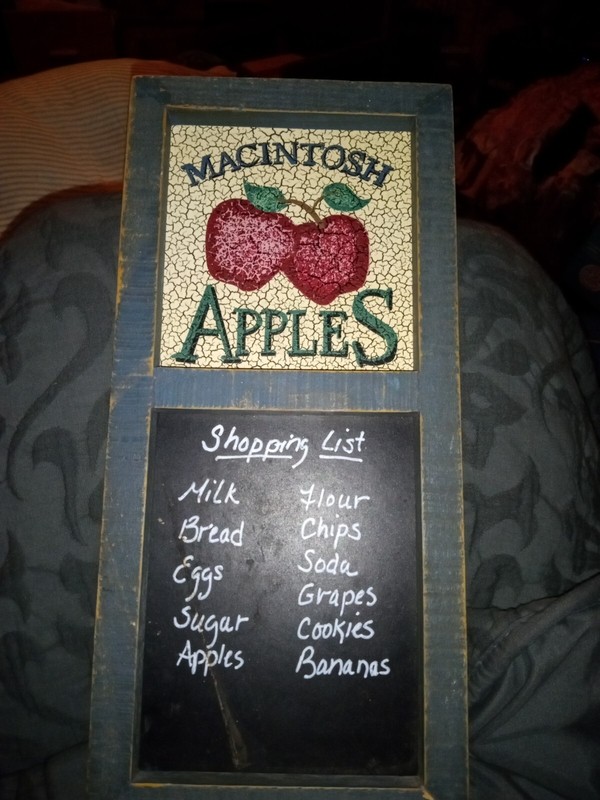 MACINTOSH
APPLES
Shopping List
Milk
Bread
Eggs
Sugar
Apples
Flour
Chips
Soda
Grapes
Cookies
Bananas